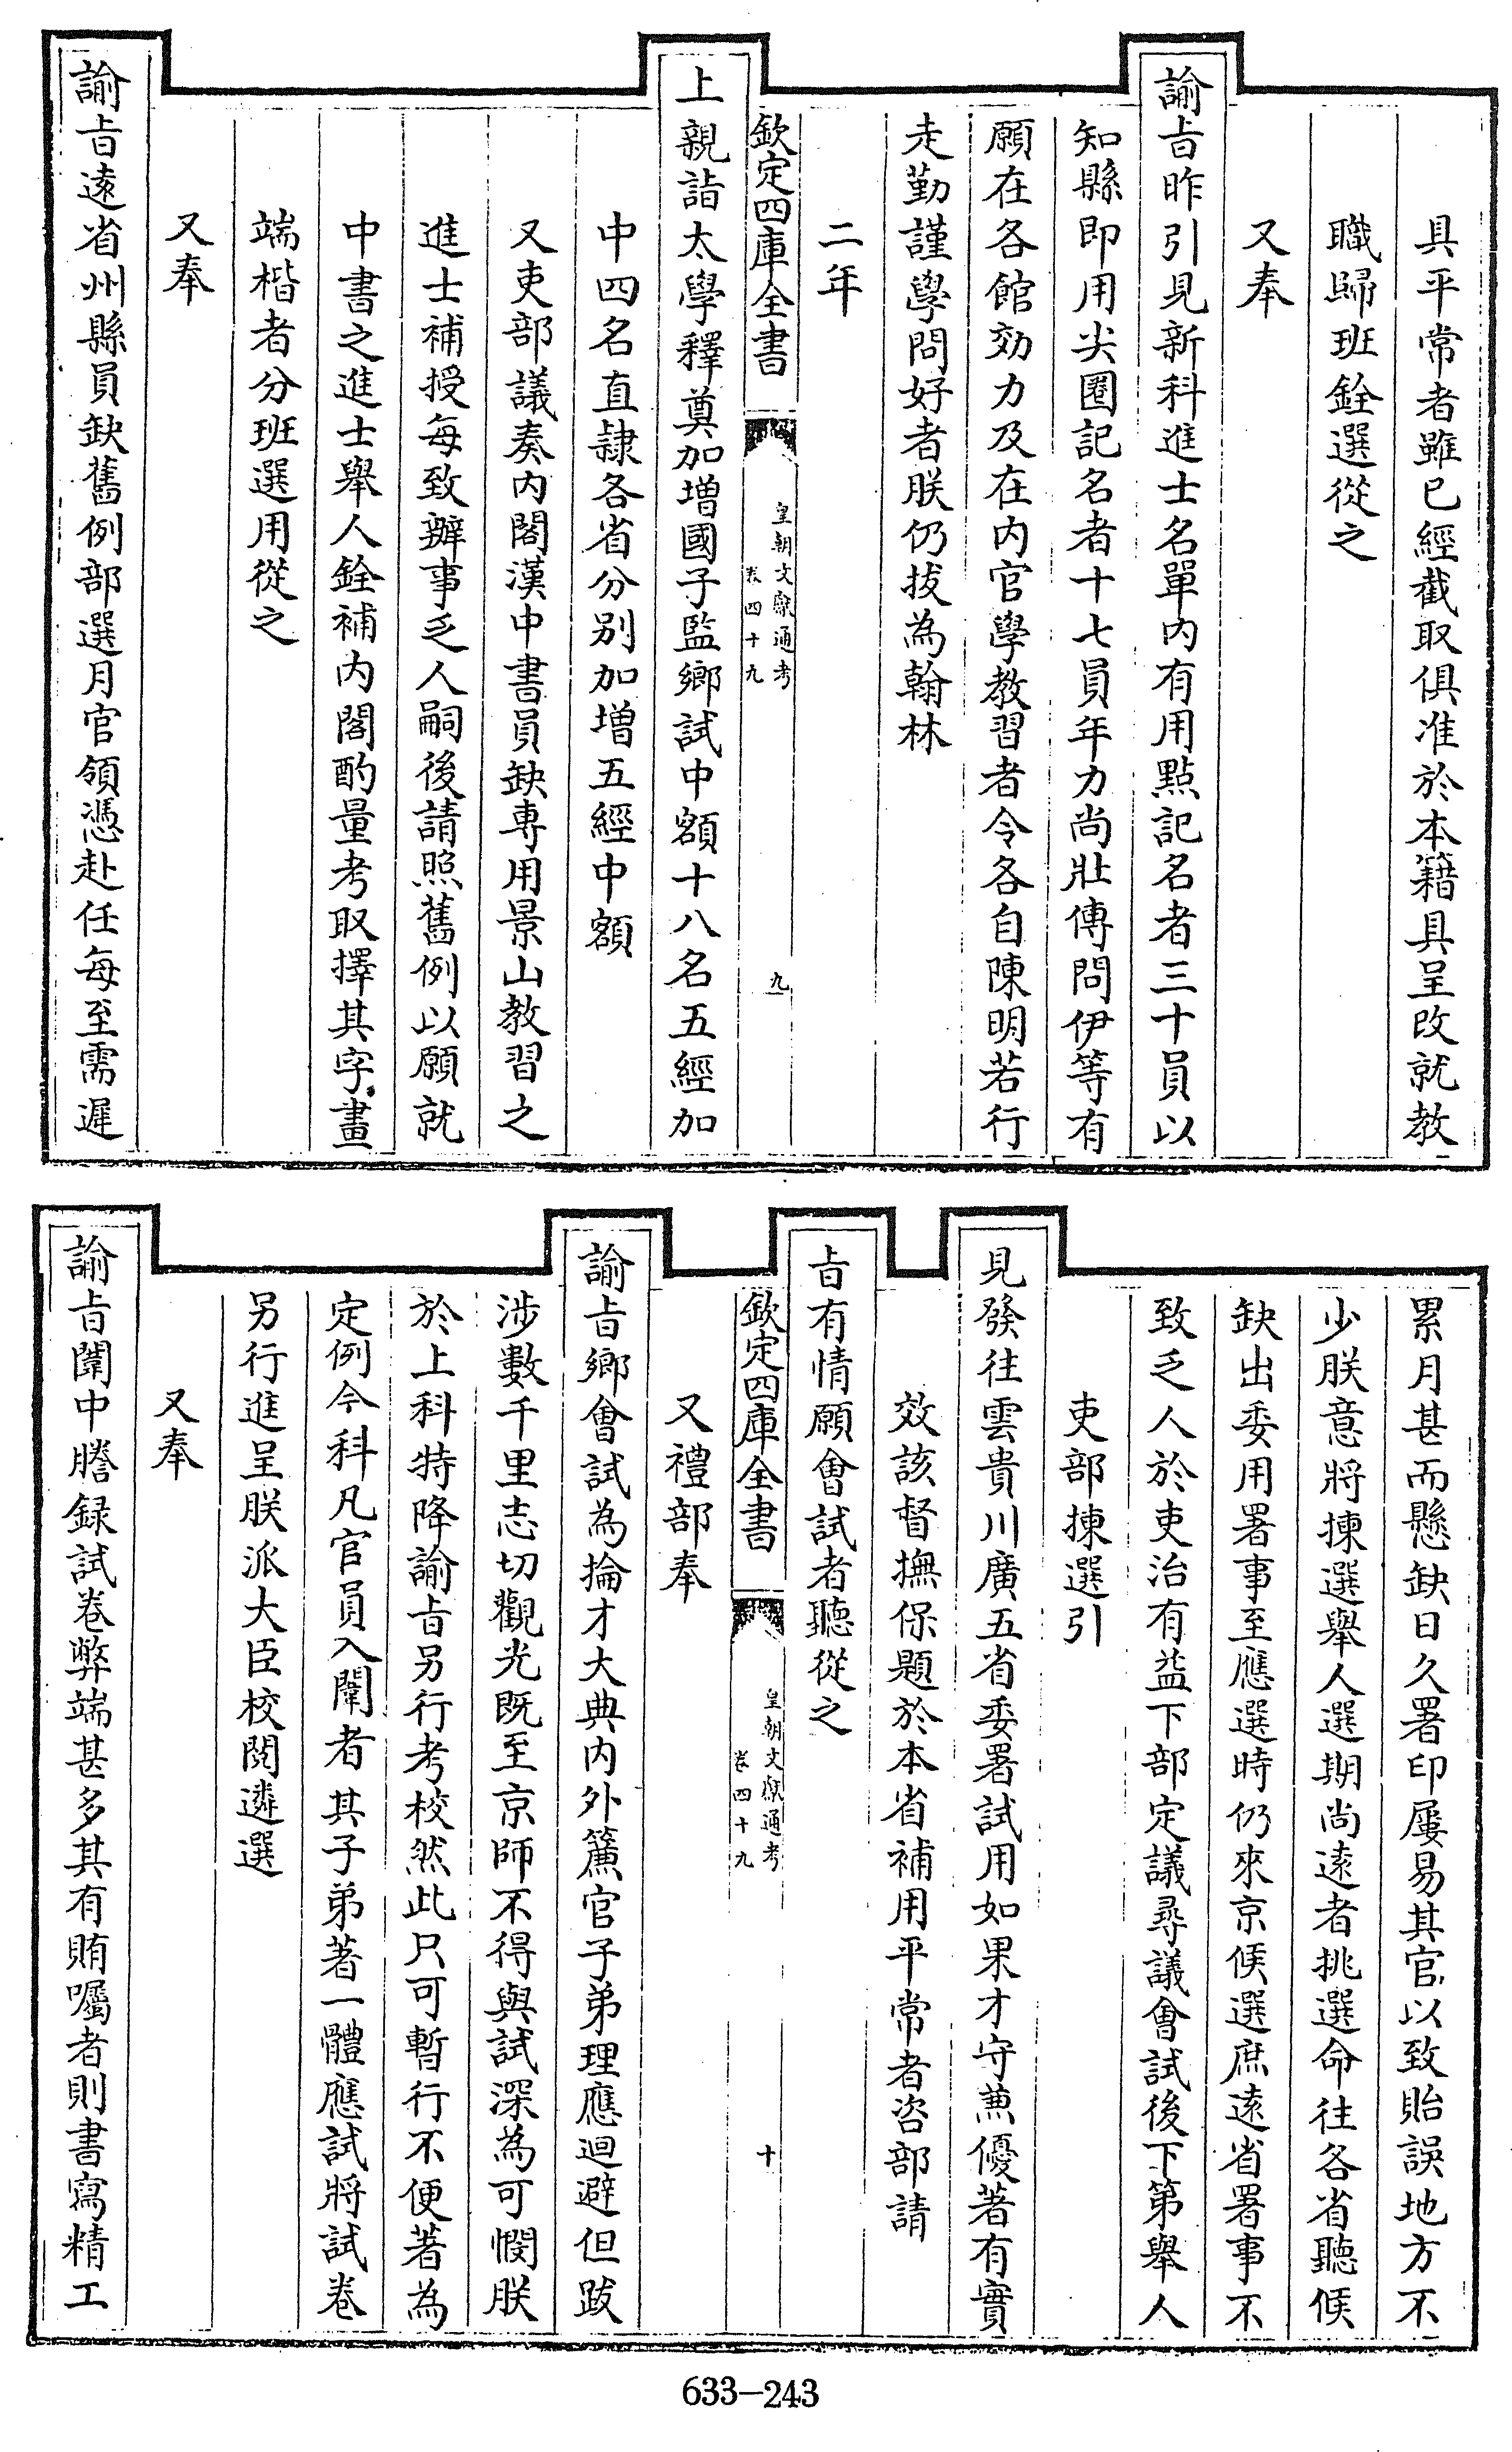 具平常者雖已經截取俱准於本籍具呈改就教
職歸班銓選從之
又奉
諭旨昨引見新科進士名單內有用點記名者三十員以
知縣即用尖圈記名者十七員年力尚壯傳問伊等有
願在各館効力及在內官學教習者令各自陳明若行
走勤謹學問好者朕仍拔為翰林
二年
欽定四庫全書
皇朝文獻通考
卷四十九
九
上親詣太學釋奠加增國子監鄉試中額十八名五經加
中四名直隷各省分別加增五經中額
又吏部議奏內閣漢中書員缺專用景山教習之
進士補授每致辦事乏人嗣後請照舊例以願就
中書之進士舉人銓補內閣酌量考取擇其字畫
端楷者分班選用從之
又奉
諭旨遠省州縣員缺舊例部選月官領憑赴任每至需遲
累月甚而懸缺日久署印屢易其官以致貽誤地方不
少朕意將揀選舉人選期尚遠者挑選命往各省聽候
缺出委用署事至應選時仍來京候選庶遠省署事不
致乏人於吏治有益下部定議尋議會試後下第舉人
吏部揀選引
見發往雲貴川廣五省委署試用如果才守兼優著有實
效該督撫保題於本省補用平常者咨部請
旨有情願會試者聽從之
欽定四庫全書
皇朝文獻通考
卷四十九
十
又禮部奉
諭旨鄉會試為掄才大典內外簾官子弟理應迴避但跋
涉數千里志切觀光既至京師不得與試深為可憫朕
於上科特降諭旨另行考校然此只可暫行不便著為
定例今科凡官員入闈者其子弟著一體應試將試卷
另行進呈朕派大臣校閱遴選
又奉
諭旨闈中謄録試卷弊端甚多其有賄囑者則書寫精工
633-243